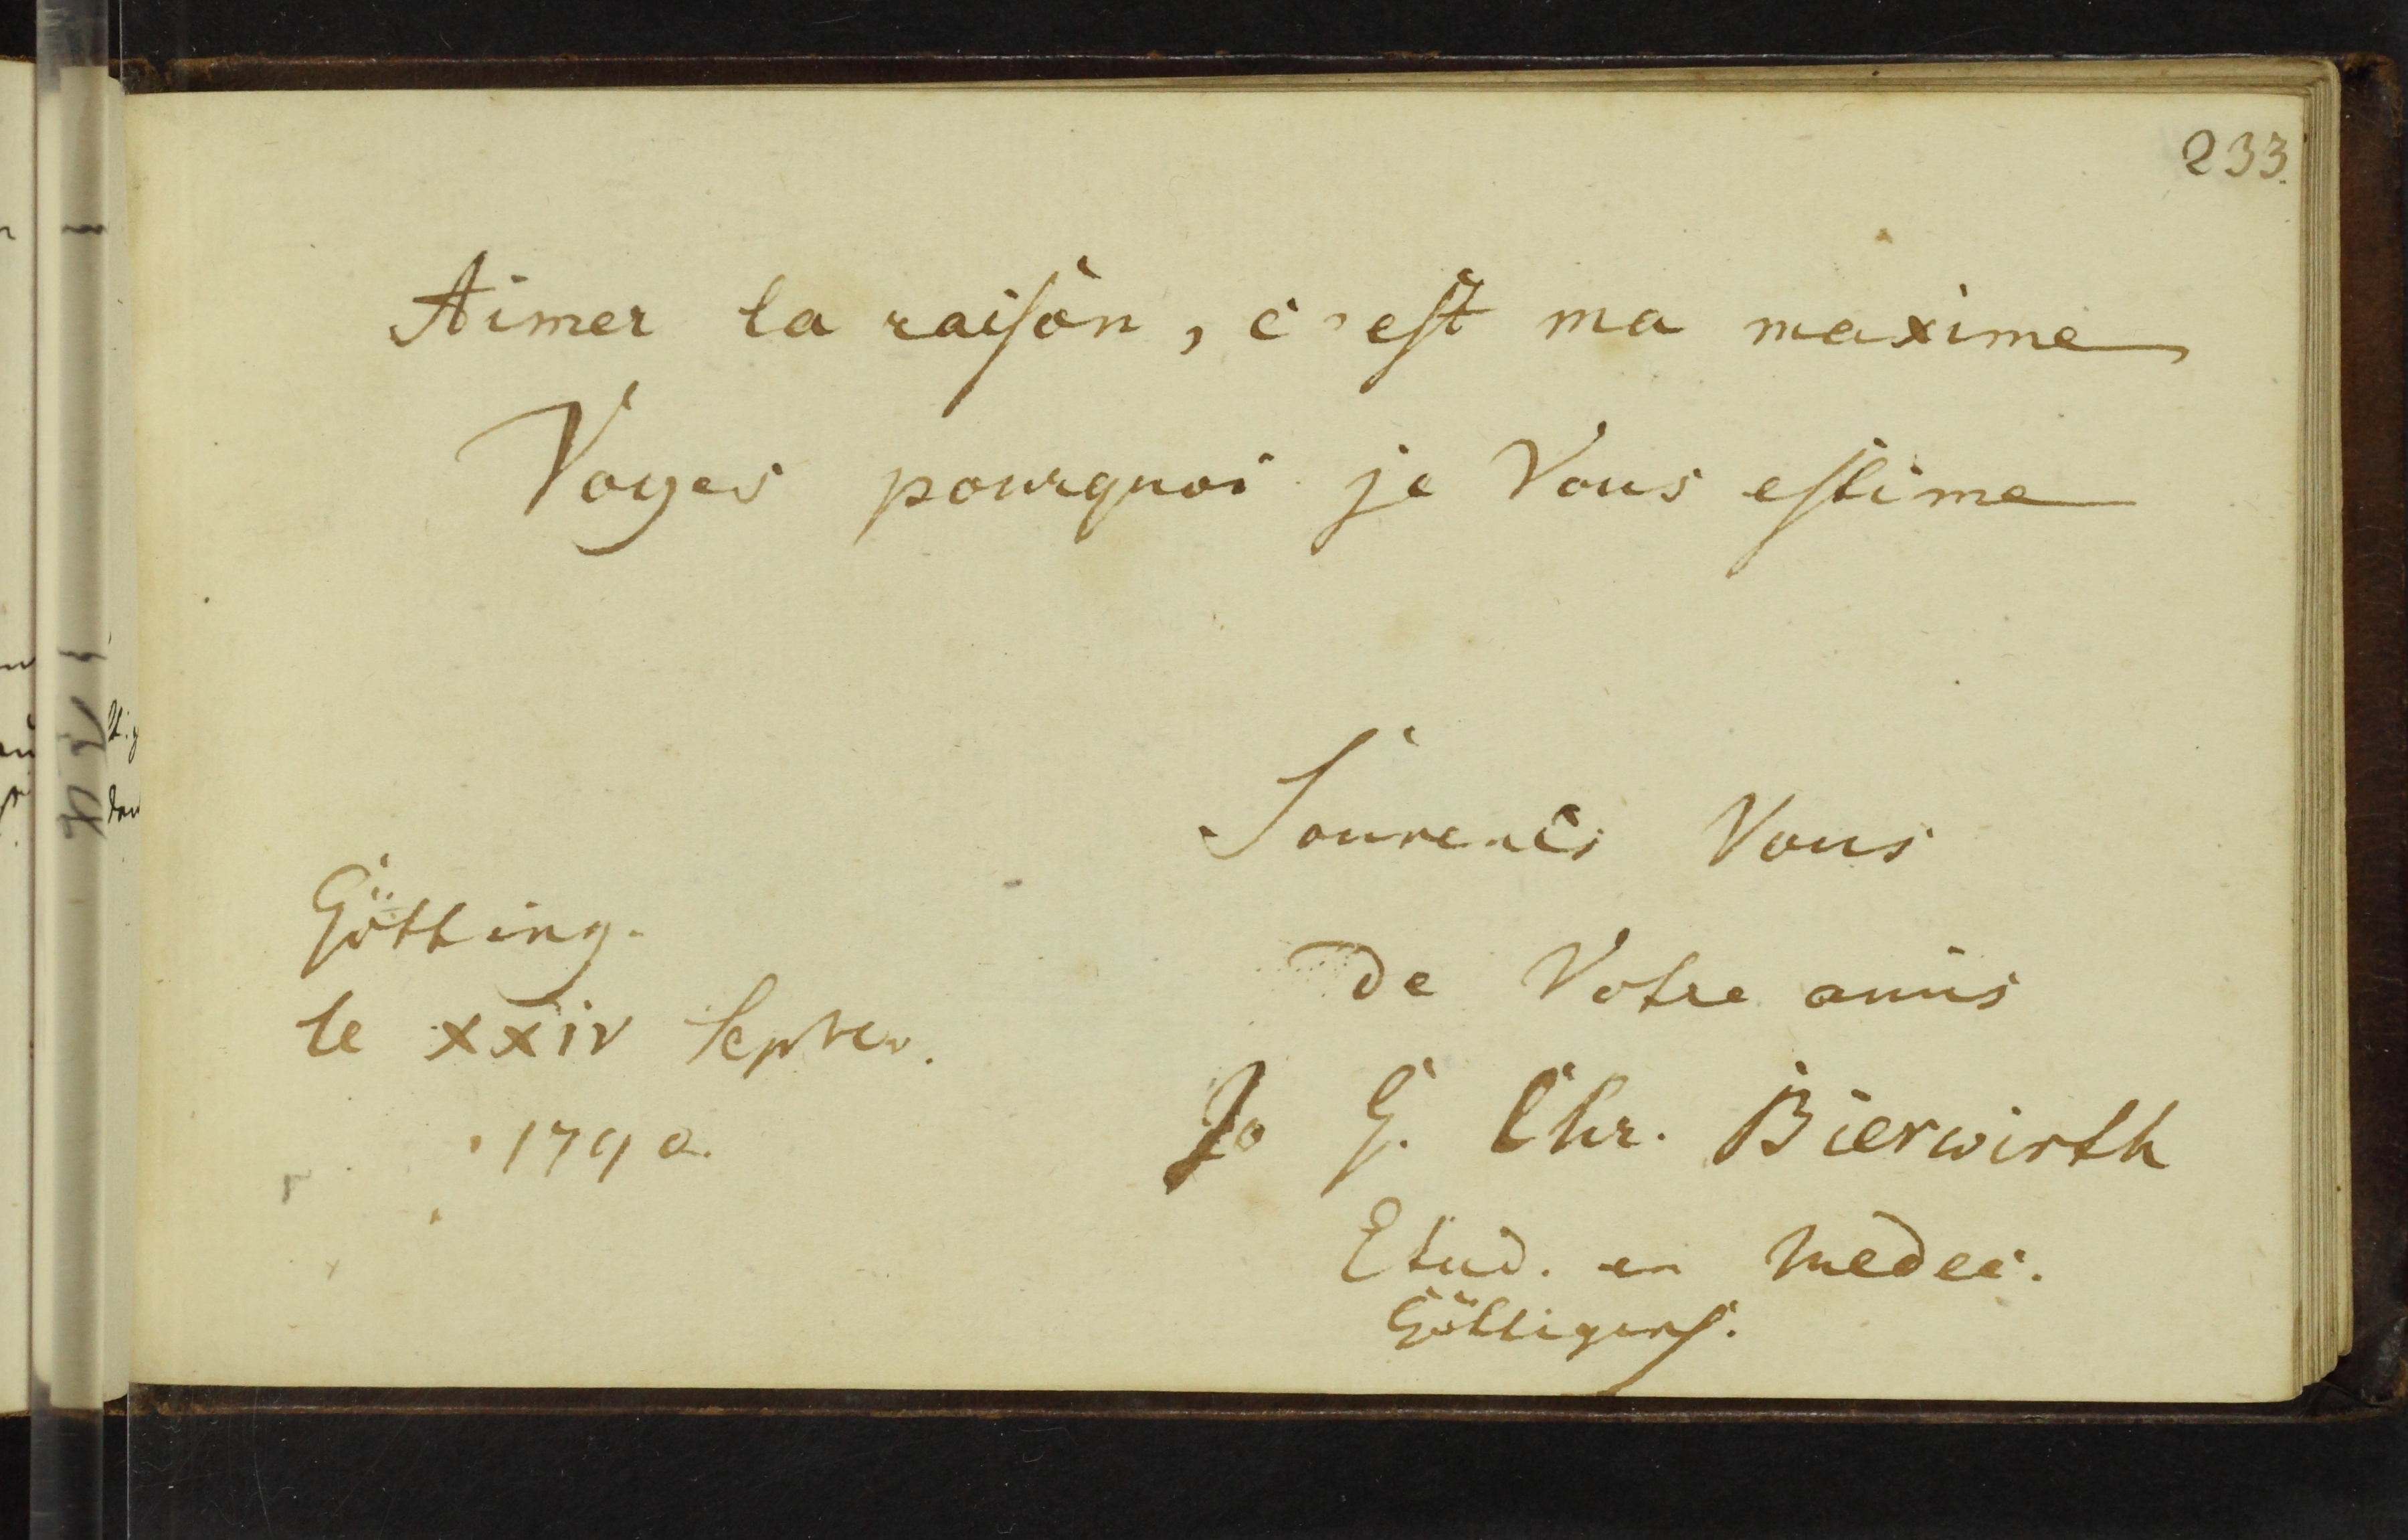 233.
Aimer la raiſon, c'eſt ma maxime
Voyes pourquoi je Vous eſtime
Souvenés Vous
de Votre amis
Jo G. Chr. Bierwirth
Etud. en Medec.
Göttigenſ.
Götting.
le XXIV Septbr.
1790.